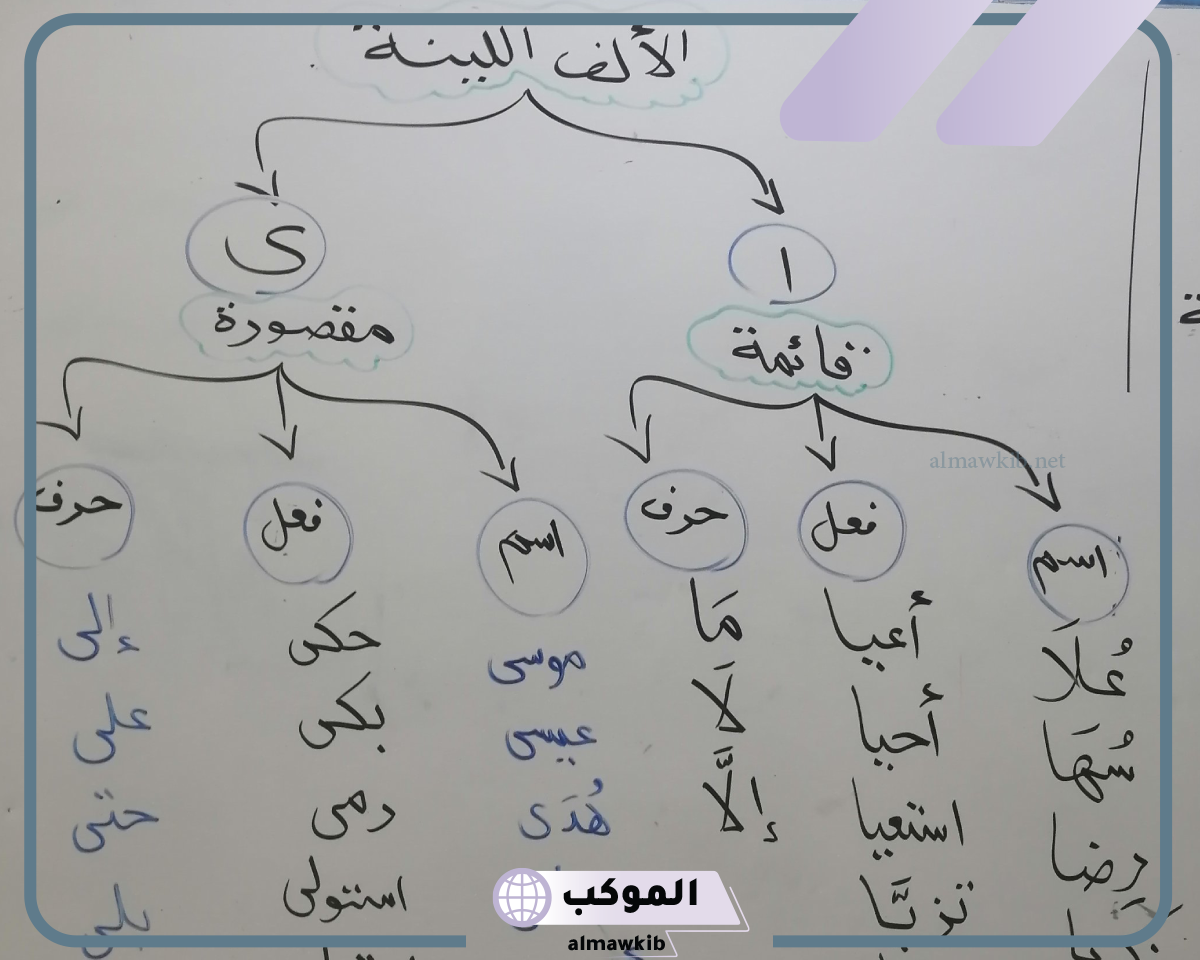 الألف اللينة
ا
ى
قائمة
مقصورة
almawkib.net
اسم
فعل
حرف
اسم
فعل
حرف
عُلاَ
أعيا
مَا
موسى
حكى
إلى
سُهَا
أحيا
لاَ
عيسى
بكى
على
رِضا
استعيا
إلَّا
هُدَى
رمى
حتى
تزيَّا
استولى
بلى
الموكب
almawkib